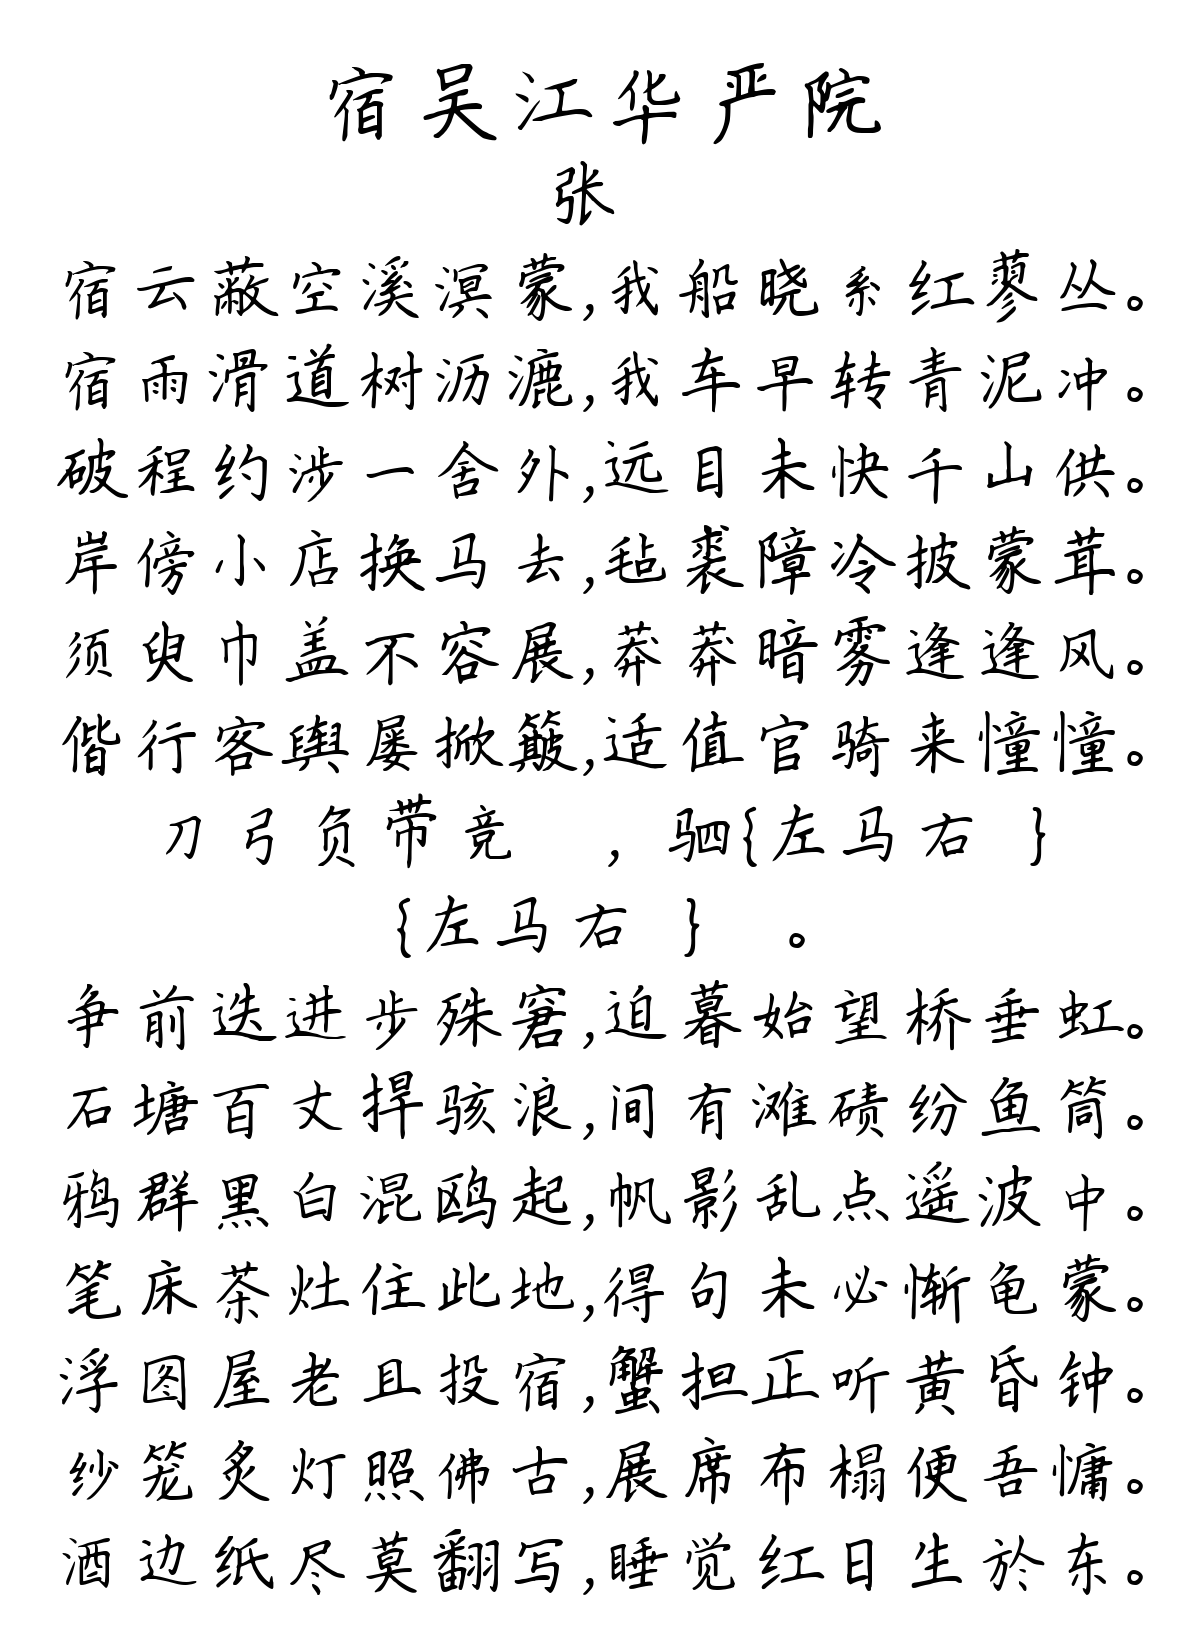 宿吴江华严院
张
宿云蔽空溪溟蒙,我船晓系红蓼丛。
宿雨滑道树沥漉,我车早转青泥冲。
破程约涉一舍外,远目未快千山供。
岸傍小店换马去,毡裘障冷披蒙茸。
须臾巾盖不容展,莽莽暗雾逢逢风。
偕行客舆屡掀簸,适值官骑来憧憧。
刀弓负带竞 ,驷{左马右 }
{左马右 } 。
争前迭进步殊窘,迫暮始望桥垂虹。
石塘百丈捍骇浪,间有滩碛纷鱼筒。
鸦群黑白混鸥起,帆影乱点遥波中。
笔床茶灶住此地,得句未必惭龟蒙。
浮图屋老且投宿,蟹担正听黄昏钟。
纱笼炙灯照佛古,展席布榻便吾慵。
酒边纸尽莫翻写,睡觉红日生於东。